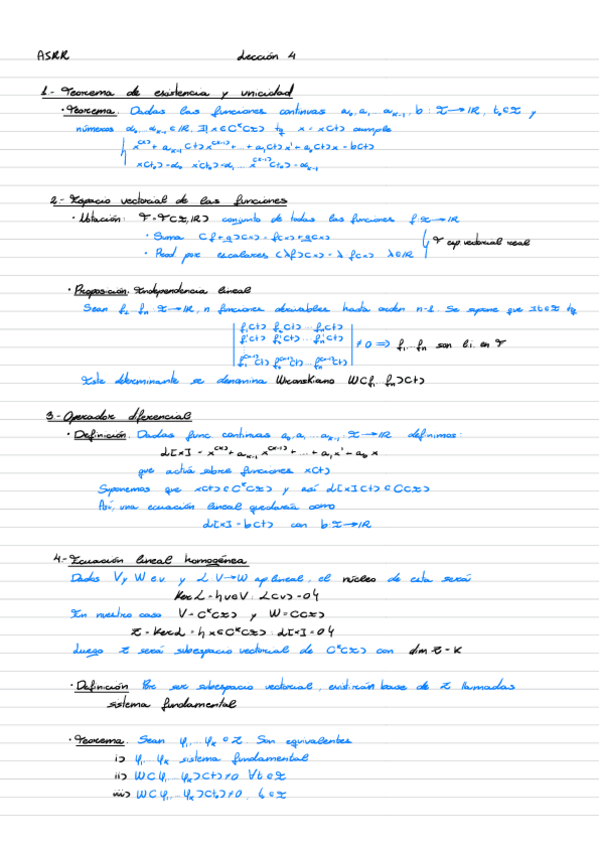 ASRR Lección 4
1.- Teorema de existencia y unicidad
· Teorema. Dadas las funciones continuas a₀, a₁ ... aₖ₋₁, b : I → IR, t₀ ∈ I y
números α₀...αₖ₋₁ ∈ IR, ∃! x ∈ Cᵏ(I) tq x = x(t) cumple
{ x⁽ᵏ⁾ + aₖ₋₁(t) x⁽ᵏ⁻¹⁾ + ... + a₁(t) x' + a₀(t) x = b(t)
x(t₀) = α₀ x'(t₀) = α₁ ... x⁽ᵏ⁻¹⁾(t₀) = αₖ₋₁
2.- Espacio vectorial de las funciones
· Notación: F = F(I, IR) conjunto de todas las funciones f: I → IR
· Suma (f+g)(x) = f(x) + g(x)
· Prod por escalares (λf)(x) = λ f(x) λ ∈ IR
} F esp vectorial real
· Proposición. Independencia lineal
Sean f₁...fₙ : I → IR, n funciones derivables hasta orden n-1. Se supone que ∃ t ∈ I tq
| f₁(t) f₂(t) ... fₙ(t) |
| f₁'(t) f₂'(t) ... fₙ'(t) | ≠ 0 => f₁...fₙ son l.i. en F
| f₁⁽ⁿ⁻¹⁾(t) f₂⁽ⁿ⁻¹⁾(t) ... fₙ⁽ⁿ⁻¹⁾(t) |
Este determinante se denomina Wronskiano W(f₁...fₙ)(t)
3.- Operador diferencial
· Definición. Dadas func continuas a₀, a₁, ... aₖ₋₁ : I → IR definimos:
L[x] = x⁽ᵏ⁾ + aₖ₋₁ x⁽ᵏ⁻¹⁾ + ... + a₁ x' + a₀ x
que actúa sobre funciones x(t)
Suponemos que x(t) ∈ Cᵏ(I) y así L[x](t) ∈ C(I)
Así, una ecuación lineal quedaría como
L[x] = b(t) con b: I → IR
4.- Ecuación lineal homogénea
Dados V y W e.v. y L: V → W ap lineal, el núcleo de esta será
Ker L = { v ∈ V : L(v) = 0 }
En nuestro caso V = Cᵏ(I) y W = C(I)
Z = Ker L = { x ∈ Cᵏ(I) : L[x] = 0 }
Luego Z será subespacio vectorial de Cᵏ(I) con dim Z = K
· Definición Por ser subespacio vectorial, existirán base de Z llamadas
sistema fundamental
· Teorema. Sean φ₁, ... φₖ ∈ Z. Son equivalentes
i) φ₁...φₖ sistema fundamental
ii) W(φ₁, ... φₖ)(t) ≠ 0 ∀t ∈ I
iii) W(φ₁, ... φₖ)(t₀) ≠ 0, t₀ ∈ I